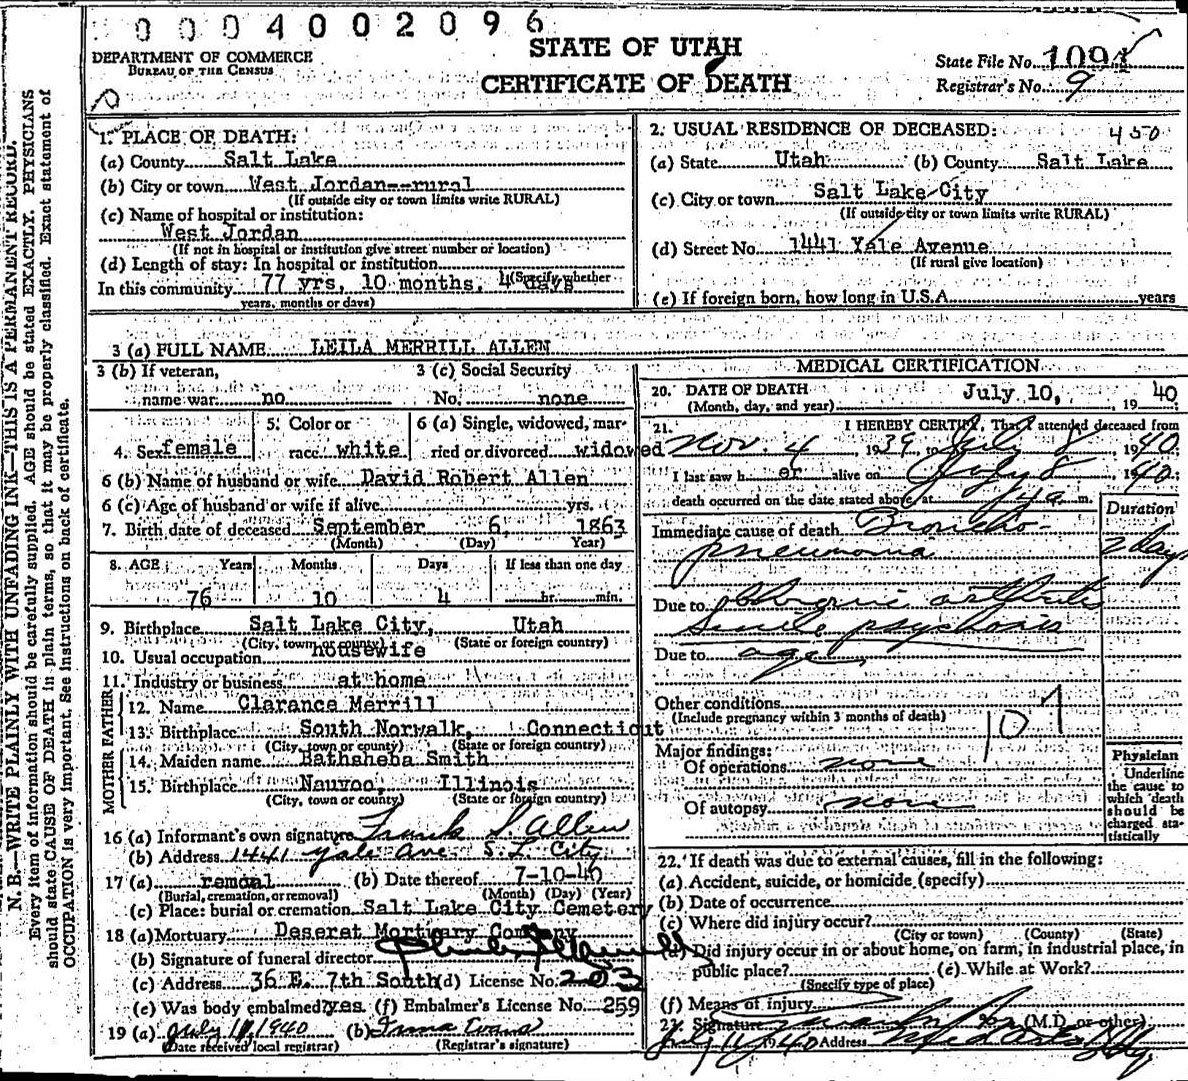 0 0 0 4 0 0 2 0 9 6
DEPARTMENT OF COMMERCE
BUREAU OF THE CENSUS
STATE OF UTAH
CERTIFICATE OF DEATH
State File No. 1094
Registrar's No. 9
1. PLACE OF DEATH:
(a) County Salt Lake
(b) City or town West Jordan--rural
(If outside city or town limits write RURAL)
(c) Name of hospital or institution:
West Jordan
(If not in hospital or institution give street number or location)
(d) Length of stay: In hospital or institution
(Specify whether
In this community 77 yrs, 10 months, 4 days
years, months or days)
2. USUAL RESIDENCE OF DECEASED: 450
(a) State Utah (b) County Salt Lake
(c) City or town Salt Lake City
(If outside city or town limits write RURAL)
(d) Street No. 1441 Yale Avenue
(If rural give location)
(e) If foreign born, how long in U.S.A. years
3 (a) FULL NAME LEILA MERRILL ALLEN
3 (b) If veteran, 3 (c) Social Security
name war no No. none
4. Sex female 5. Color or race white 6 (a) Single, widowed, married or divorced widowed
6 (b) Name of husband or wife David Robert Allen
6 (c) Age of husband or wife if alive yrs.
7. Birth date of deceased September 6, 1863
(Month) (Day) Year)
8. AGE Years Months Days If less than one day
76 10 4 hr. min.
9. Birthplace Salt Lake City, Utah
(City, town or county) (State or foreign country)
10. Usual occupation housewife
11. Industry or business at home
FATHER
12. Name Clarance Merrill
13. Birthplace South Norwalk, Connecticut
(City, town or county) (State or foreign country)
MOTHER
14. Maiden name Bathsheba Smith
15. Birthplace Nauvoo, Illinois
(City, town or county) (State or foreign country)
16 (a) Informant's own signature Frank S. Allen
(b) Address 1441 Yale Ave S. L. City
17 (a) removal (b) Date thereof 7-10-40
(Burial, cremation, or removal) (Month) (Day) (Year)
(c) Place: burial or cremation Salt Lake City Cemetery
18 (a) Mortuary Deseret Mortuary Company
(b) Signature of funeral director
(c) Address 36 E. 7th South (d) License No. 203
(e) Was body embalmed? yes (f) Embalmer's License No. 259
19 (a) July 11, 1940 (b) Irma Evans
(Date received local registrar) (Registrar's signature)
MEDICAL CERTIFICATION
20. DATE OF DEATH July 10, 19 40
(Month, day, and year)
21. I HEREBY CERTIFY, That I attended deceased from
Nov. 4, 1939, to July 8, 1940
I last saw h er alive on July 8, 1940;
death occurred on the date stated above, at a m.
Duration
Immediate cause of death Broncho-
pneumonia 2 days
Due to Chronic arthritis
Senile psychosis
Due to age
Other conditions
(Include pregnancy within 3 months of death) 107
Major findings:
Of operations none
Of autopsy none
Physician
Underline
the cause to
which death
should be
charged sta-
tistically
22. If death was due to external causes, fill in the following:
(a) Accident, suicide, or homicide (specify)
(b) Date of occurrence
(c) Where did injury occur?
(City or town) (County) (State)
(d) Did injury occur in or about home, on farm, in industrial place, in
public place? (e) While at Work?
(Specify type of place)
(f) Means of injury
23. Signature (M.D. or other)
July 1940 Address
N. B.—WRITE PLAINLY WITH UNFADING INK—THIS IS A PERMANENT RECORD.
Every item of information should be carefully supplied. AGE should be stated EXACTLY. PHYSICIANS
should state CAUSE OF DEATH in plain terms, so that it may be properly classified. Exact statement of
OCCUPATION is very important. See instructions on back of certificate.